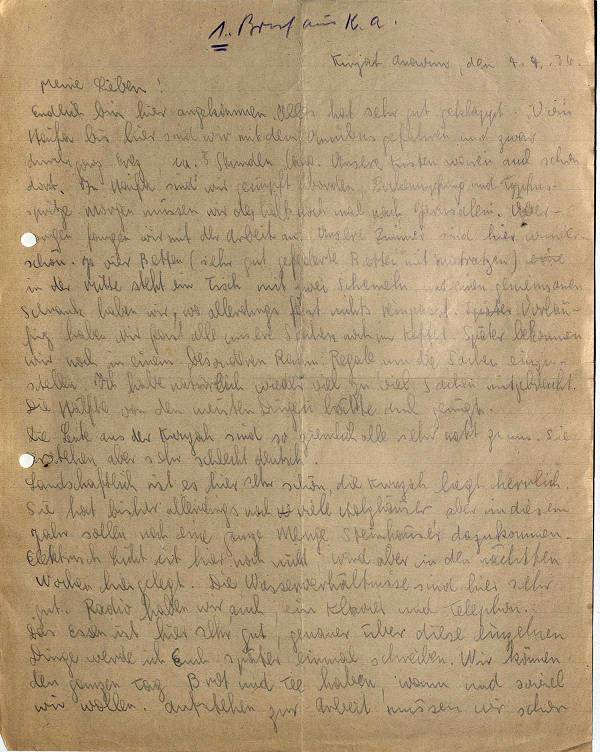 1. Brief aus K. A.
Kirjat Anavim, den 4. 4. 36.
Meine Lieben!
Endlich bin hier angekommen. Alles hat sehr gut geklappt. Von
Haifa bis hier sind wir mit dem Omnibus gefahren und zwar
ca. 5 Stunden lang. Unsere Kisten waren auch schon
dort. In Haifa sind wir geimpft worden, und Typhus-
spritze morgen müssen wir deshalb noch mal nach Jerusalem. Über-
morgen fangen wir mit der Arbeit an. Unsere Zimmer sind hier wunder-
schön. Je vier Betten (sehr gut gefederte Betten mit Matratzen)
in der Mitte steht ein Tisch mit zwei Schemeln und einen gemeinsamen
Schrank haben wir, wo allerdings fast nichts reinpasst. Vorläu-
fig haben wir fast alle unsere Sachen noch im Koffer. Später bekommen
wir noch in einem besonderen Raum Regale um die Sachen einzu-
stellen. Ich habe natürlich wieder viel zu viel Sachen mitgebracht.
Die Hälfte von den meisten Dingen hätte auch genügt.
Die Leute aus der Kwuzah sind so ziemlich alle sehr nett zu uns. Sie
verstehen aber sehr schlecht deutsch.
Landschaftlich ist es hier sehr schön, die Kwuzah liegt herrlich.
Sie hat bisher allerdings noch viele Holzhäuser aber in diesem
Jahr sollen noch eine ganze Menge Steinhäuser dazukommen.
Elektrisch Licht ist hier noch nicht wird aber in den nächsten
Wochen hergelegt. Die Wasserverhältnisse sind hier sehr
gut. Radio haben wir auch, ein Klavier und Telephon.
Das Essen ist hier sehr gut, genauer über diese einzelnen
Dinge werde ich Euch später einmal schreiben. Wir können
den ganzen Tag Brot und Tee haben, wann und soviel
wir wollen. Aufstehen zur Arbeit müssen wir schon